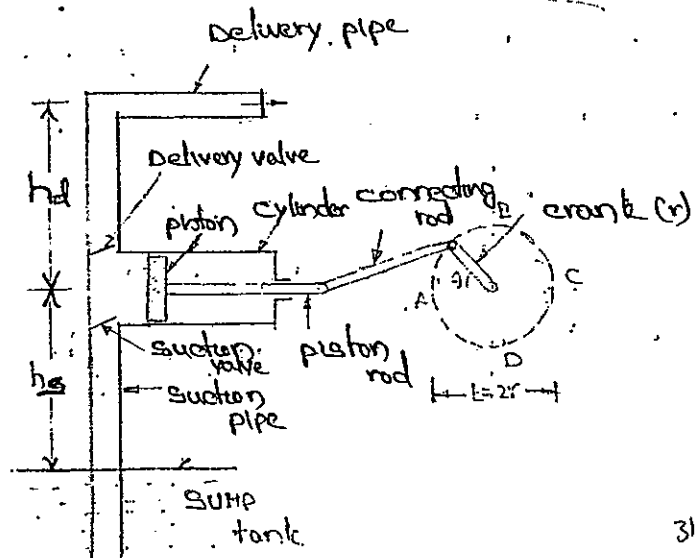 Delivery pipe
Delivery valve
hd
piston
cylinder
connecting
rod
B
crank (r)
A
θ
C
D
L=2r
suction
valve
piston
rod
hs
suction
pipe
SUMP
tank
31